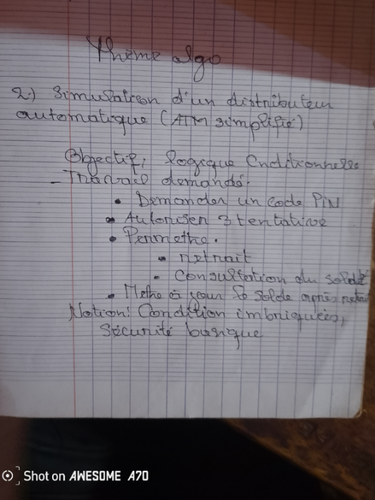 Theme algo
2) Simulation d'un distributeur
automatique (ATM simplifié)
Objectif: logique Cnditionnelle
- Travail demandé:
• Demander un code PIN
• Autoriser 3 tentative
• Permettre:
• retrait
• Consultation du solde
• Mettre à jour le solde après retrait
Notion: Condition imbriquées,
Sécurité basique
Shot on AWESOME A70